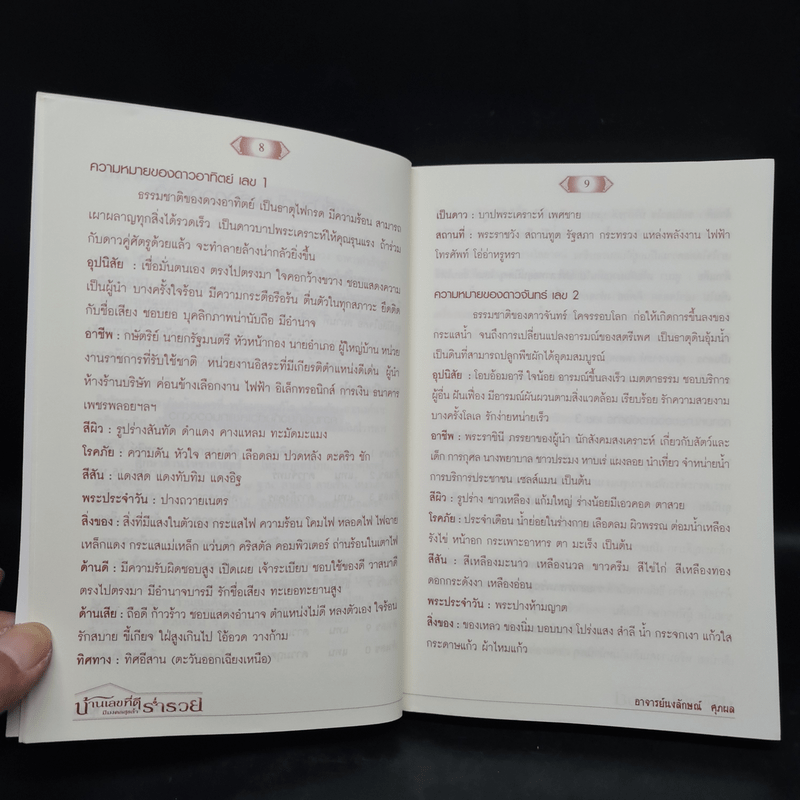 8
ความหมายของดาวอาทิตย์ เลข 1
ธรรมชาติของดวงอาทิตย์ เป็นธาตุไฟกรด มีความร้อน สามารถ
เผาผลาญทุกสิ่งได้รวดเร็ว เป็นดาวบาปพระเคราะห์ให้คุณรุนแรง ถ้าร่วม
กับดาวคู่ศัตรูด้วยแล้ว จะทำลายล้างน่ากลัวยิ่งขึ้น
อุปนิสัย : เชื่อมั่นตนเอง ตรงไปตรงมา ใจคอกว้างขวาง ชอบแสดงความ
เป็นผู้นำ บางครั้งใจร้อน มีความกระตือรือร้น ตื่นตัวในทุกสภาวะ ยึดติด
กับชื่อเสียง ชอบยอ บุคลิกภาพน่านับถือ มีอำนาจ
อาชีพ : กษัตริย์ นายกรัฐมนตรี หัวหน้ากอง นายอำเภอ ผู้ใหญ่บ้าน หน่วย
งานราชการที่รับใช้ชาติ หน่วยงานอิสระที่มีเกียรติตำแหน่งดีเด่น ผู้นำ
ห้างร้านบริษัท ค่อนข้างเลือกงาน ไฟฟ้า อิเล็กทรอนิกส์ การเงิน ธนาคาร
เพชรพลอยฯลฯ
สีผิว : รูปร่างสันทัด ดำแดง คางแหลม ทะมัดทะแมง
โรคภัย : ความดัน หัวใจ สายตา เลือดลม ปวดหลัง ตะคริว ชัก
สีสัน : แดงสด แดงทับทิม แดงอิฐ
พระประจำวัน : ปางถวายเนตร
สิ่งของ : สิ่งที่มีแสงในตัวเอง กระแสไฟ ความร้อน โคมไฟ หลอดไฟ ไฟฉาย
เหล็กแดง กระแสแม่เหล็ก แว่นตา คริสตัล คอมพิวเตอร์ ถ่านร้อนในเตาไฟ
ด้านดี : มีความรับผิดชอบสูง เปิดเผย เจ้าระเบียบ ชอบใช้ของดี วาสนาดี
ตรงไปตรงมา มีอำนาจบารมี รักชื่อเสียง ทะเยอทะยานสูง
ด้านเสีย : ถือดี ก้าวร้าว ชอบแสดงอำนาจ ตำแหน่งไม่ดี หลงตัวเอง ใจร้อน
รักสบาย ขี้เกียจ ใฝ่สูงเกินไป โอ้อวด วางก้าม
ทิศทาง : ทิศอีสาน (ตะวันออกเฉียงเหนือ)
บ้านเลขที่ดี ร่ำรวย
9
เป็นดาว : บาปพระเคราะห์ เพศชาย
สถานที่ : พระราชวัง สถานทูต รัฐสภา กระทรวง แหล่งพลังงาน ไฟฟ้า
โทรศัพท์ โอ่อ่าหรูหรา
ความหมายของดาวจันทร์ เลข 2
ธรรมชาติของดาวจันทร์ โคจรรอบโลก ก่อให้เกิดการขึ้นลงของ
กระแสน้ำ จนถึงการเปลี่ยนแปลงอารมณ์ของสตรีเพศ เป็นธาตุดินอุ้มน้ำ
เป็นดินที่สามารถปลูกพืชผักได้อุดมสมบูรณ์
อุปนิสัย : โอบอ้อมอารี ใจน้อย อารมณ์ขึ้นลงเร็ว เมตตาธรรม ชอบบริการ
ผู้อื่น ฝันเฟื่อง มีอารมณ์ผันผวนตามสิ่งแวดล้อม เรียบร้อย รักความสวยงาม
บางครั้งโลเล รักง่ายหน่ายเร็ว
อาชีพ : พระราชินี ภรรยาของผู้นำ นักสังคมสงเคราะห์ เกี่ยวกับสัตว์และ
เด็ก การกุศล นางพยาบาล ชาวประมง หาบเร่ แผงลอย นำเที่ยว จำหน่ายน้ำ
การบริการประชาชน เซลส์แมน เป็นต้น
สีผิว : รูปร่าง ขาวเหลือง แก้มใหญ่ ร่างน้อยมีเอวคอด ตาสวย
โรคภัย : ประจำเดือน น้ำย่อยในร่างกาย เลือดลม ผิวพรรณ ต่อมน้ำเหลือง
รังไข่ หน้าอก กระเพาะอาหาร ตา มะเร็ง เป็นต้น
สีสัน : สีเหลืองมะนาว เหลืองนวล ขาวครีม สีไข่ไก่ สีเหลืองทอง
ดอกกระดังงา เหลืองอ่อน
พระประจำวัน : พระปางห้ามญาต
สิ่งของ : ของเหลว ของนิ่ม บอบบาง โปร่งแสง สำลี น้ำ กระจกเงา แก้วใส
กระดาษแก้ว ผ้าไหมแก้ว
อาจารย์นงลักษณ์ ศุภผล